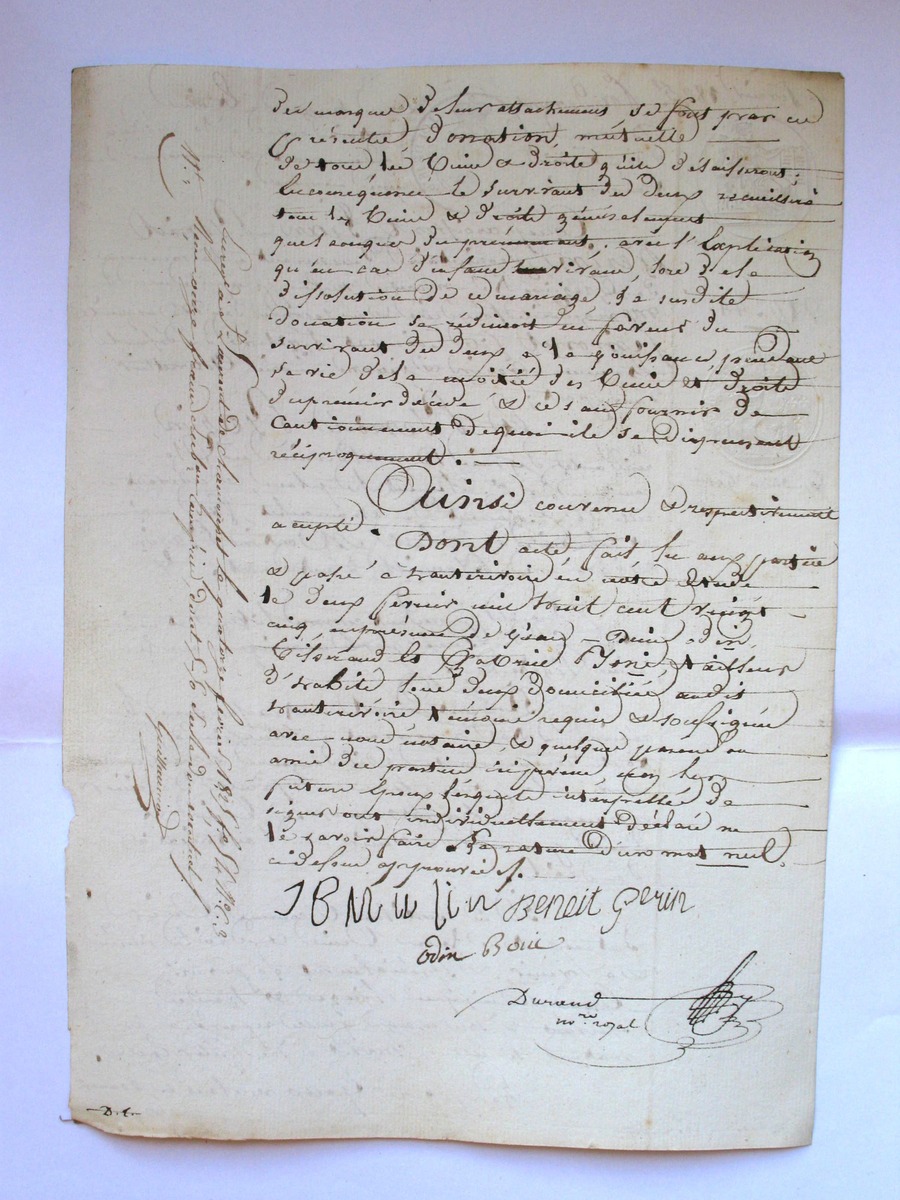 des marques de leur attachement se font par ces
présentes donation mutuelle
de tous les biens & droits qu'ils délaisseront;
En conséquence le survivant des deux recueillira
tous les biens & droits généralement
quelconques du prémourant, avec l'Explication
qu'en cas d'enfans survivans, lors de la
dissolution de ce mariage, la susdite
donation se réduiroit en faveur du
survivant des deux, à la jouissance pendant
sa vie de la moitié des biens et droits
du premier décédé & ce sans fournir de
cautionnement de quoi ils se dispensent
réciproquement.
Ainsi convenu & respectivement
accepté.
Dont acte fait, lu aux parties
& passé à hauterivoire en notre Etude
le deux fevrier mil huit cent vingt
cinq, en présence de Jean
tisserand & tailleur
d'habits tous deux domiciliés audit
hauterivoire témoins requis & soussignés
avec nous notaire, & quelques parens ou
amis des parties, non les
futurs époux lesquels interpellés de
signer ont individuellement déclaré ne
le savoir faire. La rature d'un mot nul
ci dessus approuvée.
JB Mulin Benoit Perin
odin Boin
Durand
nore royal
Enregistré à St Laurent de chamousset le quatorze fevrier 1825 fo
Rt onze francs
Guillaumin
D. t.